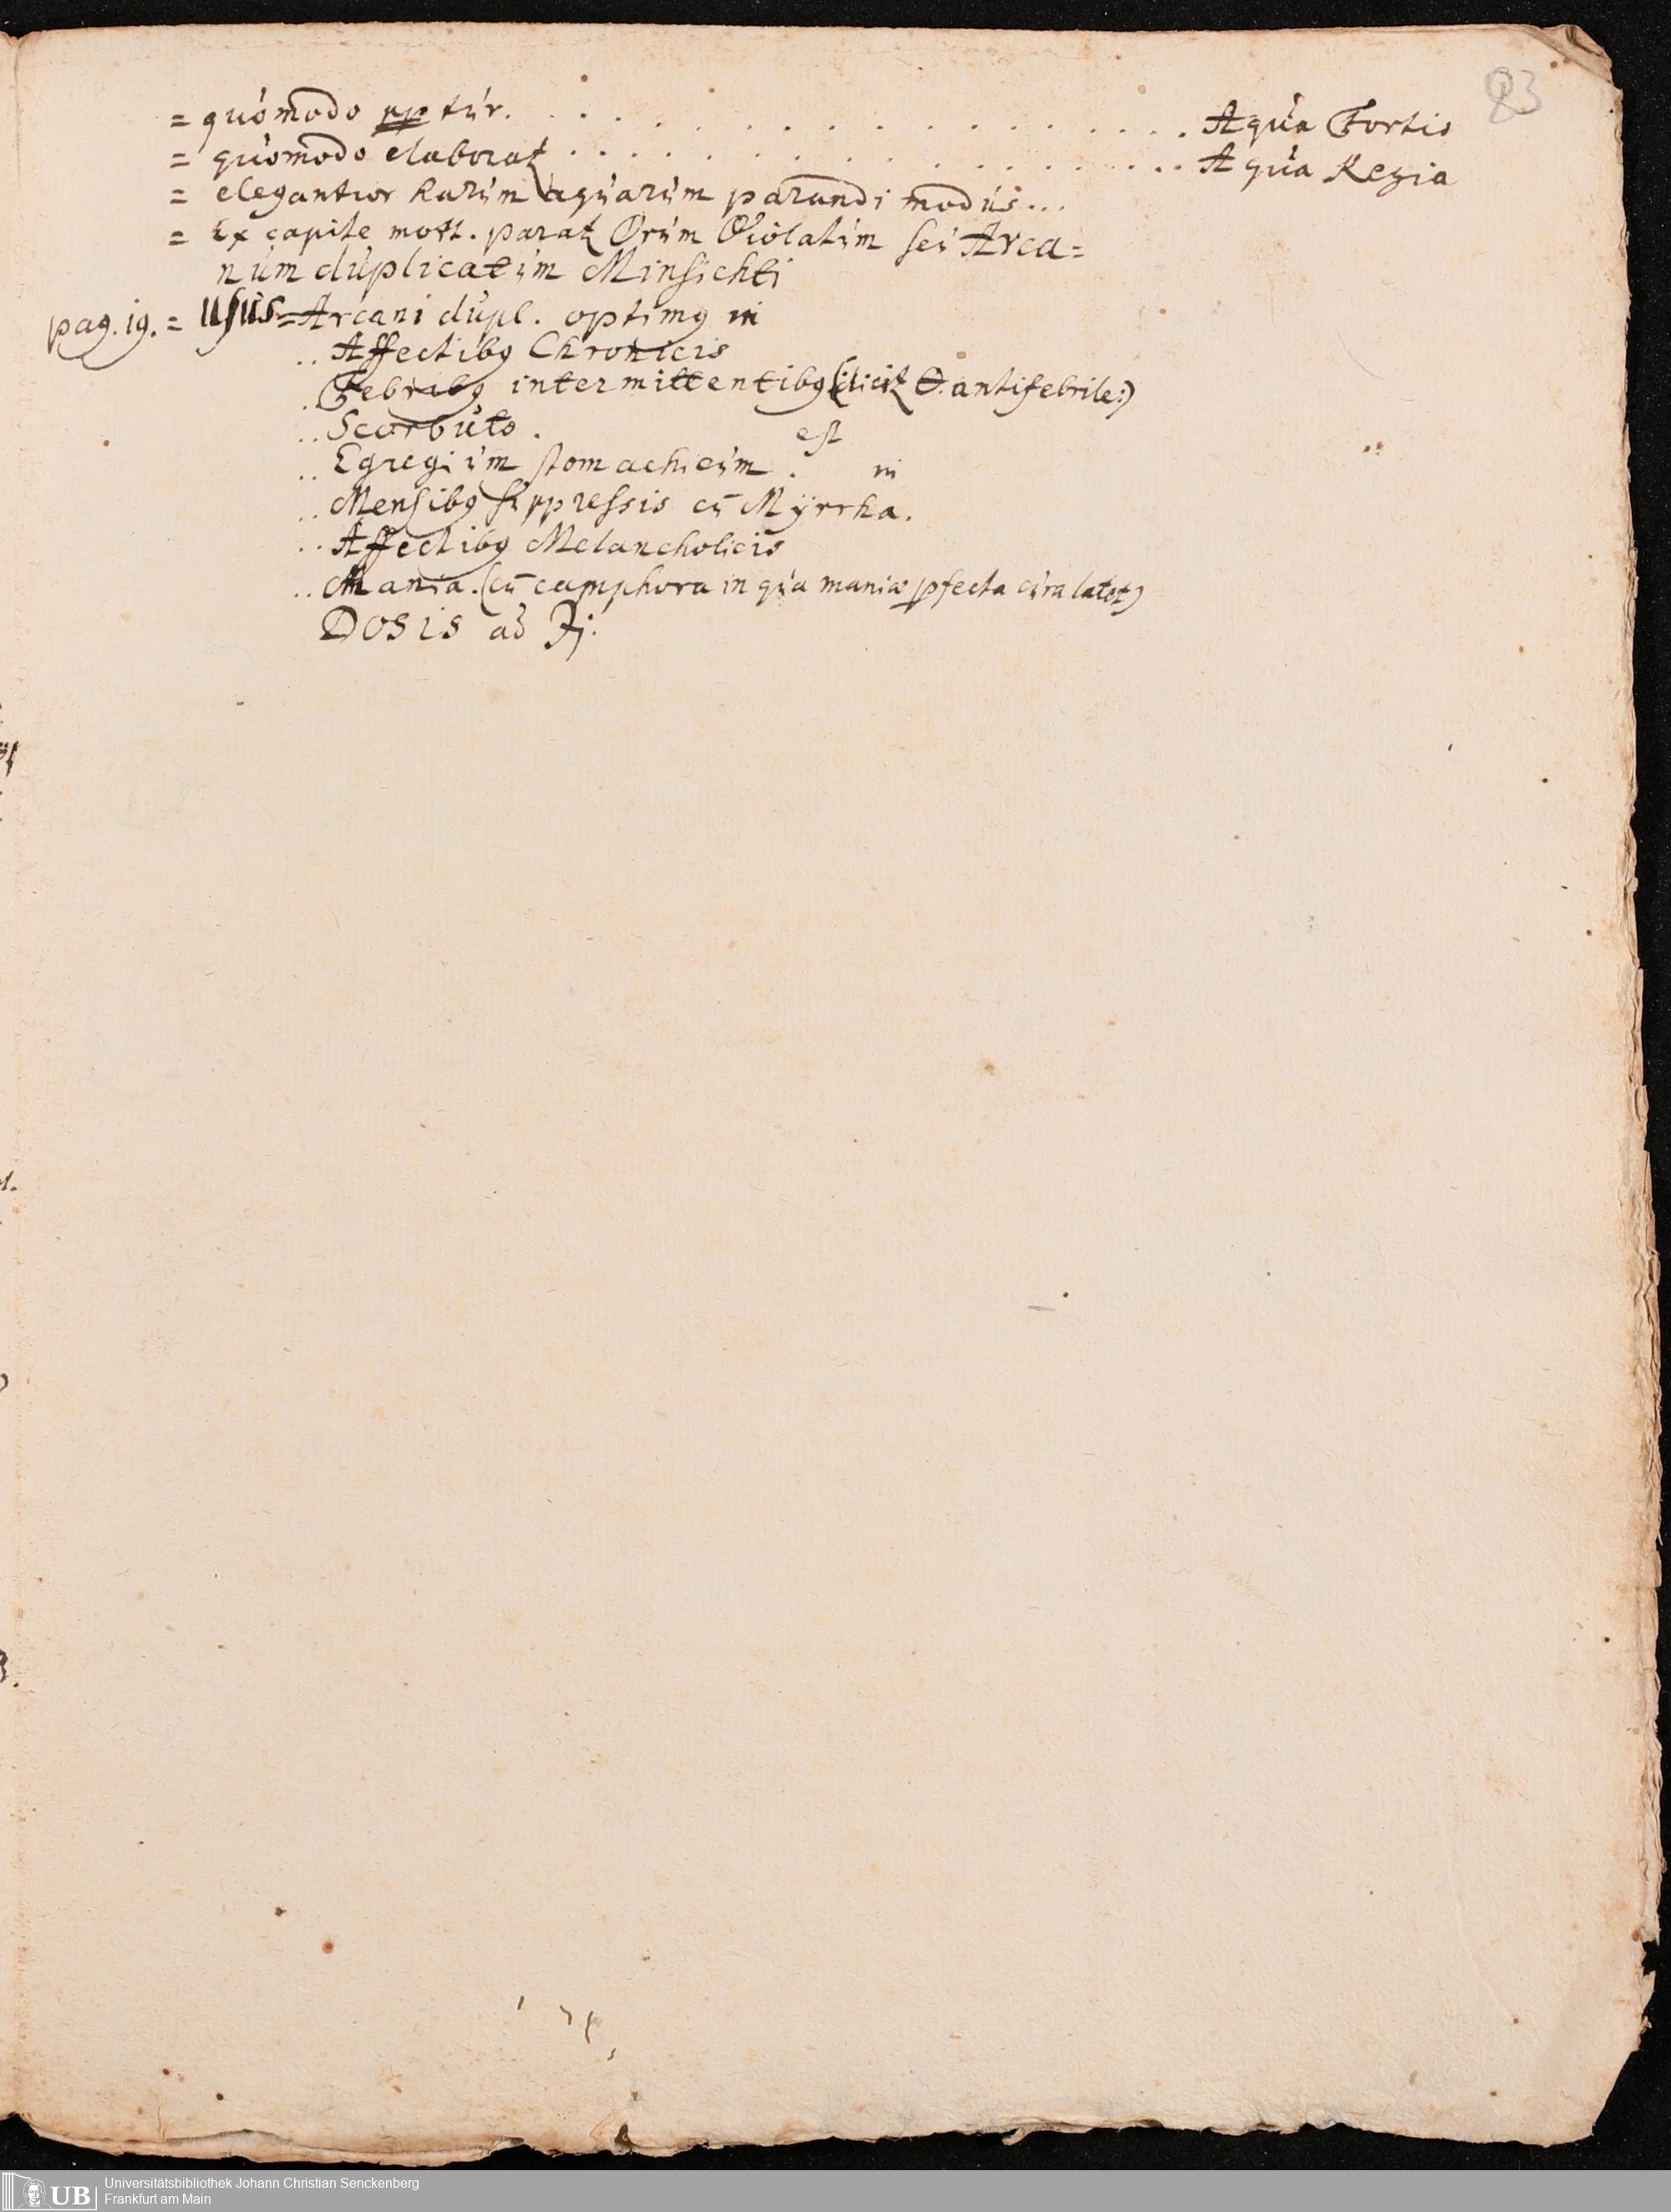 83
= quomodo pptur. . . . . . . . . . . . . . . . . Aqua Fortis
= quomodo elaborat᷒ . . . . . . . . . . . . . . . Aqua Regia
= elegantior harum aquarum parandi modus...
= Ex capite mort. parat᷒ ⦶rum ⦶iolatum seu Arca=
num duplicatum Minsichti
pag. 19. = Usus = Arcani dupl. optimꝰ in
.. Affectibꝰ Chronicis
. Febribꝰ intermittentibꝰ (: dicit᷒ ⊖. antifebrile:)
.. Scorbuto.
.. Egregium stomachicum est. in
.. Mensibꝰ suppressis cū Myrrha.
.. Affectibꝰ Melancholicis
.. Mania. (cū camphora in qua maniæ pfecta cura latet)
Dosis ad ʒj.
UB
Universitätsbibliothek Johann Christian Senckenberg
Frankfurt am Main